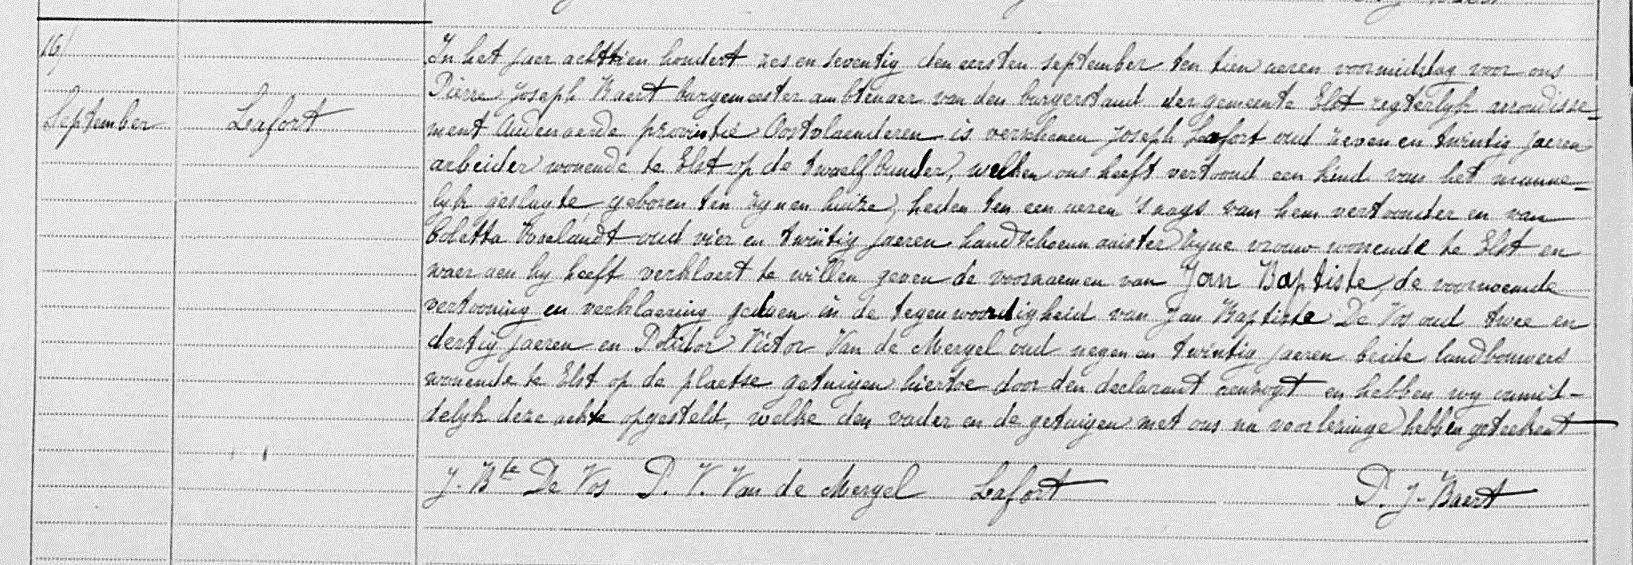 16/
September
Lafort
In het jaer achttien hondert zes en seventig den eersten september ten tien ueren voormiddag voor ons
Pierre Joseph Baert burgemeester ambtenaer van den burgerstand der gemeente Elst regterlyk arrondisse-
ment Audenaerde provintie Oostvlaenderen is verschenen Joseph Lafort oud zeven en twintig jaeren
arbeider wonende te Elst op de twaelf bunder, welken ons heeft vertoond een kind van het manne-
lyk geslagte, geboren ten zynen huize, heden ten een ueren 's nags van hem vertoonder en van
Coletta Roelandt oud vier en twintig jaeren handschoennaaister zyne vrouw wonende te Elst en
waer aen hy heeft verklaert te willen geven de voornaemen van Jan Baptiste, de voornoemde
vertooning en verklaering gedaen in de tegenwoordigheid van Jan Baptiste De Vos oud twee en
dertig jaeren en Polidor Victor Van de Mergel oud negen en twintig jaeren beide landbouwers
wonende te Elst op de plaetse getuigen hiertoe door den declarant aenzogt en hebben wy onmid-
delyk deze ackte opgesteld, welke den vader en de getuigen met ons na voorlezinge hebben geteekent
J. Bte De Vos P. V. Van de Mergel Lafort P. J. Baert